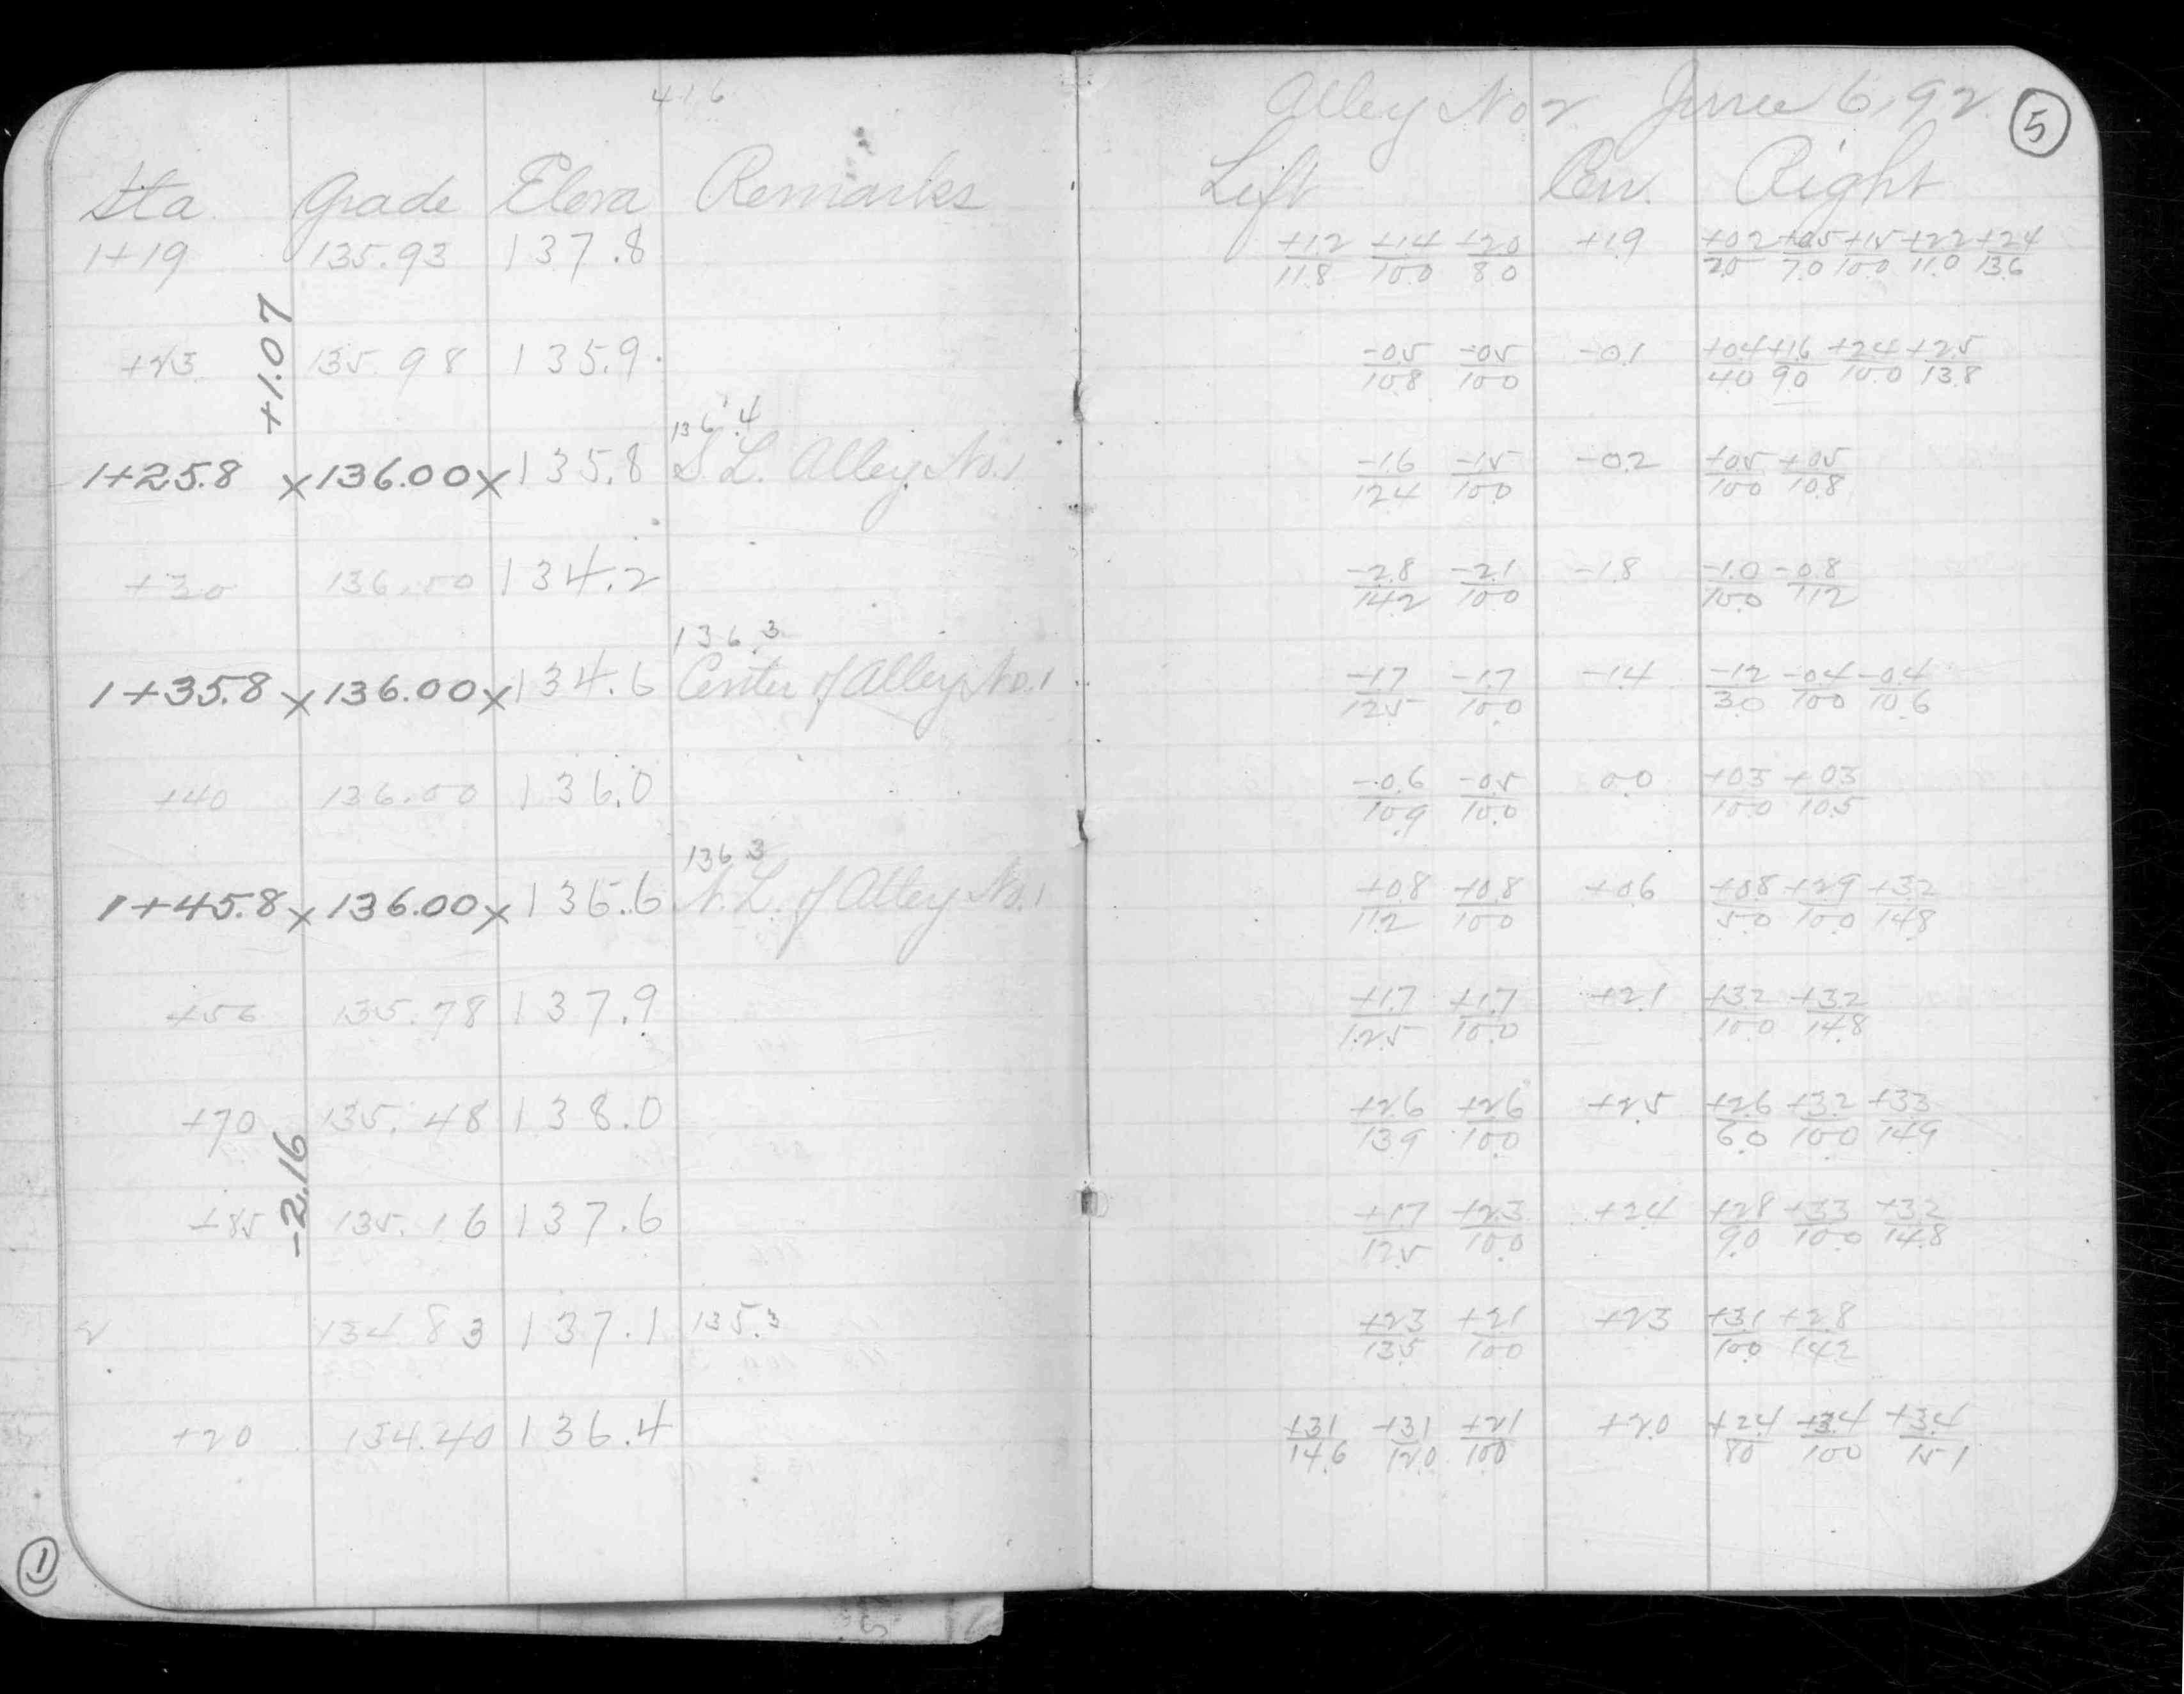 416
Sta. Grade Eleva Remarks
1+19 135.93 137.8
+1.07
+23 135.98 135.9
136.4
1+25.8 x 136.00 x 135.8 S.L. Alley No.1
+30 136.00 134.2
136.3
1+35.8 x 136.00 x 134.6 Center of Alley No.1
+40 136.00 136.0
136.3
1+45.8 x 136.00 x 136.6 N.L. of Alley No.1
+56 135.78 137.9
+70 135.48 138.0
-2.16
+85 135.16 137.6
2 134.83 137.1 135.3
+20 134.40 136.4
1
Alley No 2 June 6, 92
5
Left Cen. Right
+1.2/11.8 +1.4/10.0 +2.0/8.0 +1.9 +0.2/2.0 +0.5/7.0 +1.5/10.0 +2.2/11.0 +2.4/13.6
-0.5/10.8 -0.5/10.0 -0.1 +0.4/4.0 +1.6/9.0 +2.4/10.0 +2.5/13.8
-1.6/12.4 -1.5/10.0 -0.2 +0.5/10.0 +0.5/10.8
-2.8/14.2 -2.1/10.0 -1.8 -1.0/10.0 -0.8/11.2
-1.7/12.5 -1.7/10.0 -1.4 -1.2/3.0 -0.4/10.0 -0.4/10.6
-0.6/10.9 -0.5/10.0 0.0 +0.3/10.0 +0.3/10.5
+0.8/11.2 +0.8/10.0 +0.6 +0.8/5.0 +2.9/10.0 +3.2/14.8
+1.7/12.5 +1.7/10.0 +2.1 +3.2/10.0 +3.2/14.8
+2.6/13.9 +2.6/10.0 +2.5 +2.6/6.0 +3.2/10.0 +3.3/14.9
+1.7/12.5 +2.3/10.0 +2.4 +2.8/9.0 +3.3/10.0 +3.2/14.8
+2.3/13.5 +2.1/10.0 +2.3 +3.1/10.0 +2.8/14.2
+3.1/14.6 +3.1/12.0 +2.1/10.0 +2.0 +2.4/8.0 +3.4/10.0 +3.4/15.1